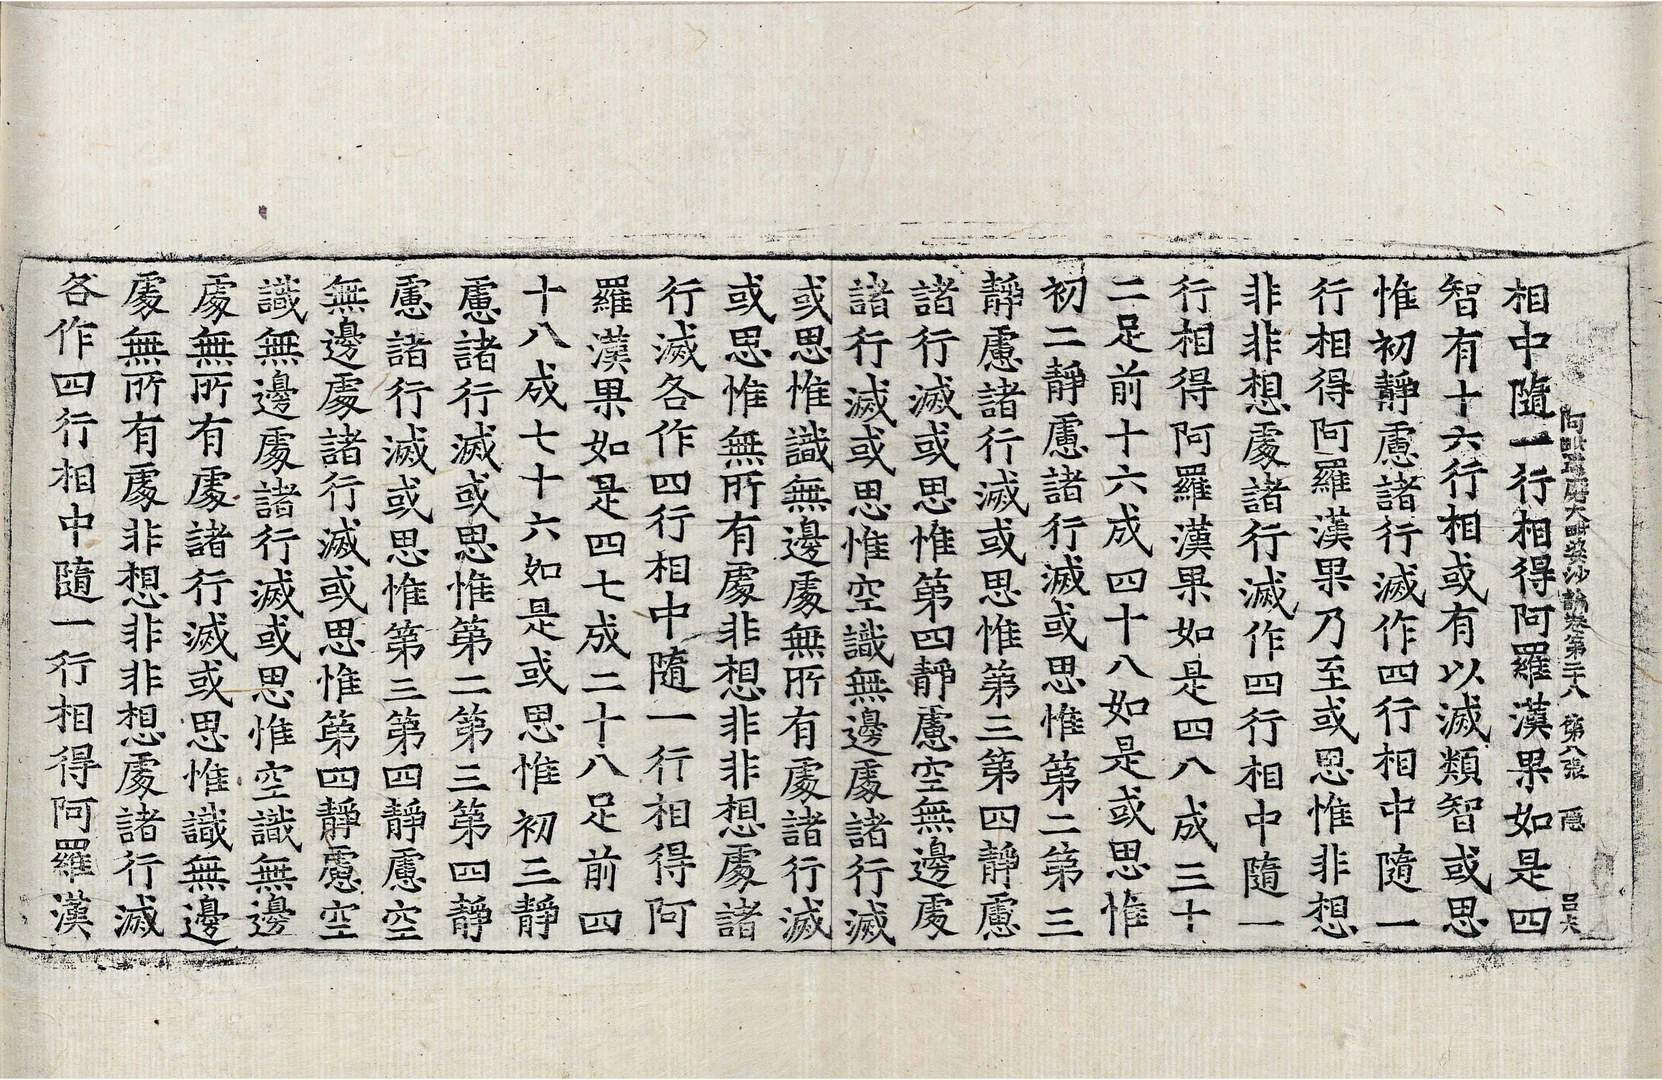 阿毗達磨大毗婆沙論卷第二十八 第八張 隱
相中隨一行相得阿羅漢果如是四
智有十六行相或有以滅類智或思
惟初靜慮諸行滅作四行相中隨一
行相得阿羅漢果乃至或思惟非想
非非想處諸行滅作四行相中隨一
行相得阿羅漢果如是四八成三十
二足前十六成四十八如是或思惟
初二靜慮諸行滅或思惟第二第三
靜慮諸行滅或思惟第三第四靜慮
諸行滅或思惟第四靜慮空無邊處
諸行滅或思惟空識無邊處諸行滅
或思惟識無邊處無所有處諸行滅
或思惟無所有處非想非非想處諸
行滅各作四行相中隨一行相得阿
羅漢果如是四七成二十八足前四
十八成七十六如是或思惟初三靜
慮諸行滅或思惟第二第三第四靜
慮諸行滅或思惟第三第四靜慮空
無邊處諸行滅或思惟第四靜慮空
識無邊處諸行滅或思惟空識無邊
處無所有處諸行滅或思惟識無邊
處無所有處非想非非想處諸行滅
各作四行相中隨一行相得阿羅漢